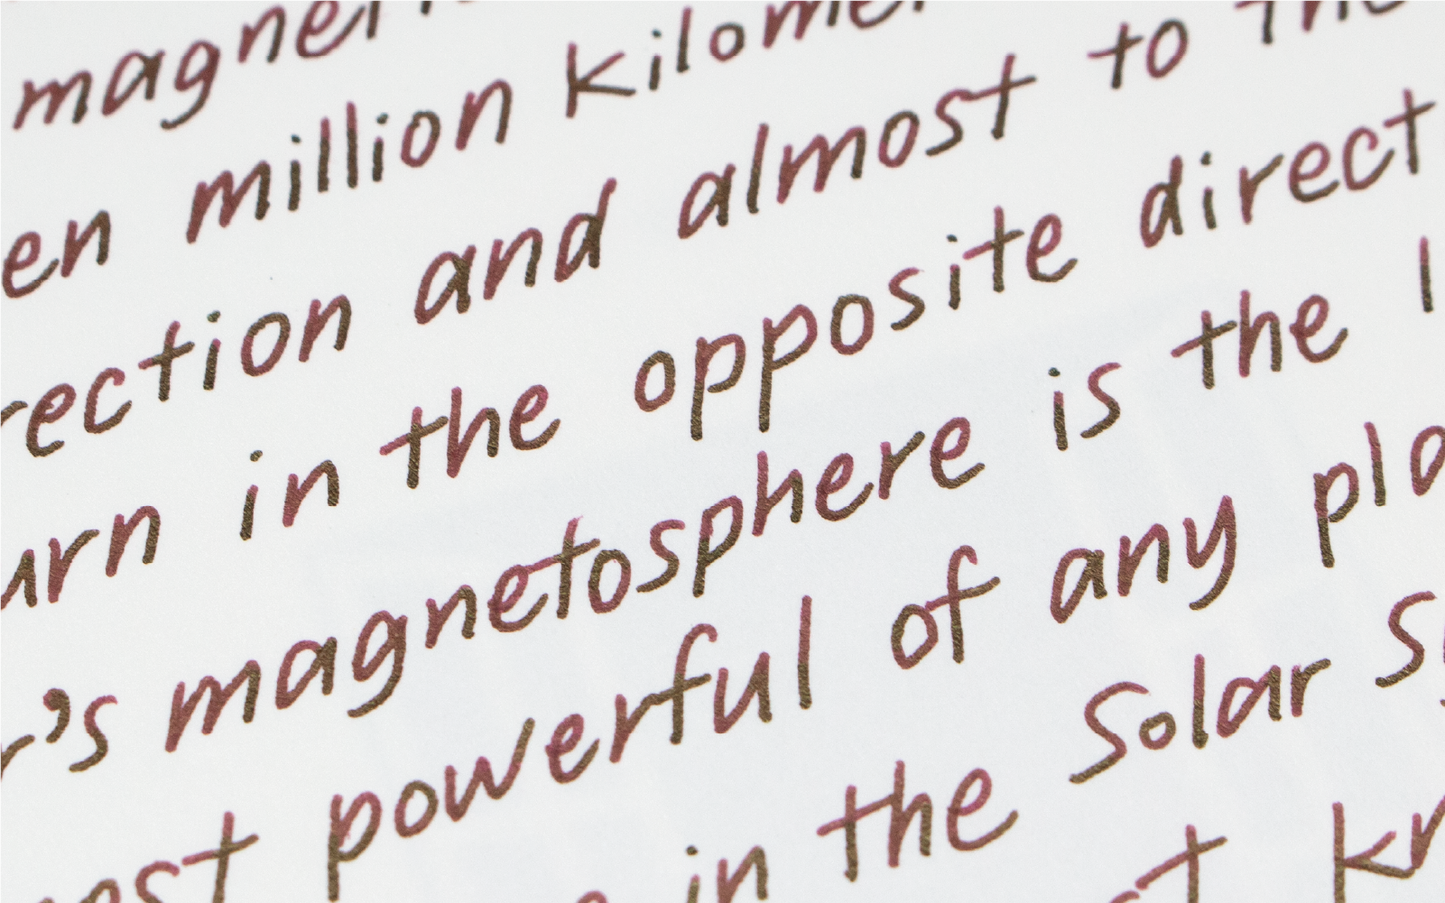 magnet
en million kilome
rection and almost to the
urn in the opposite direct
r's magnetosphere is the l
ost powerful of any pla
in the Solar S
t kn